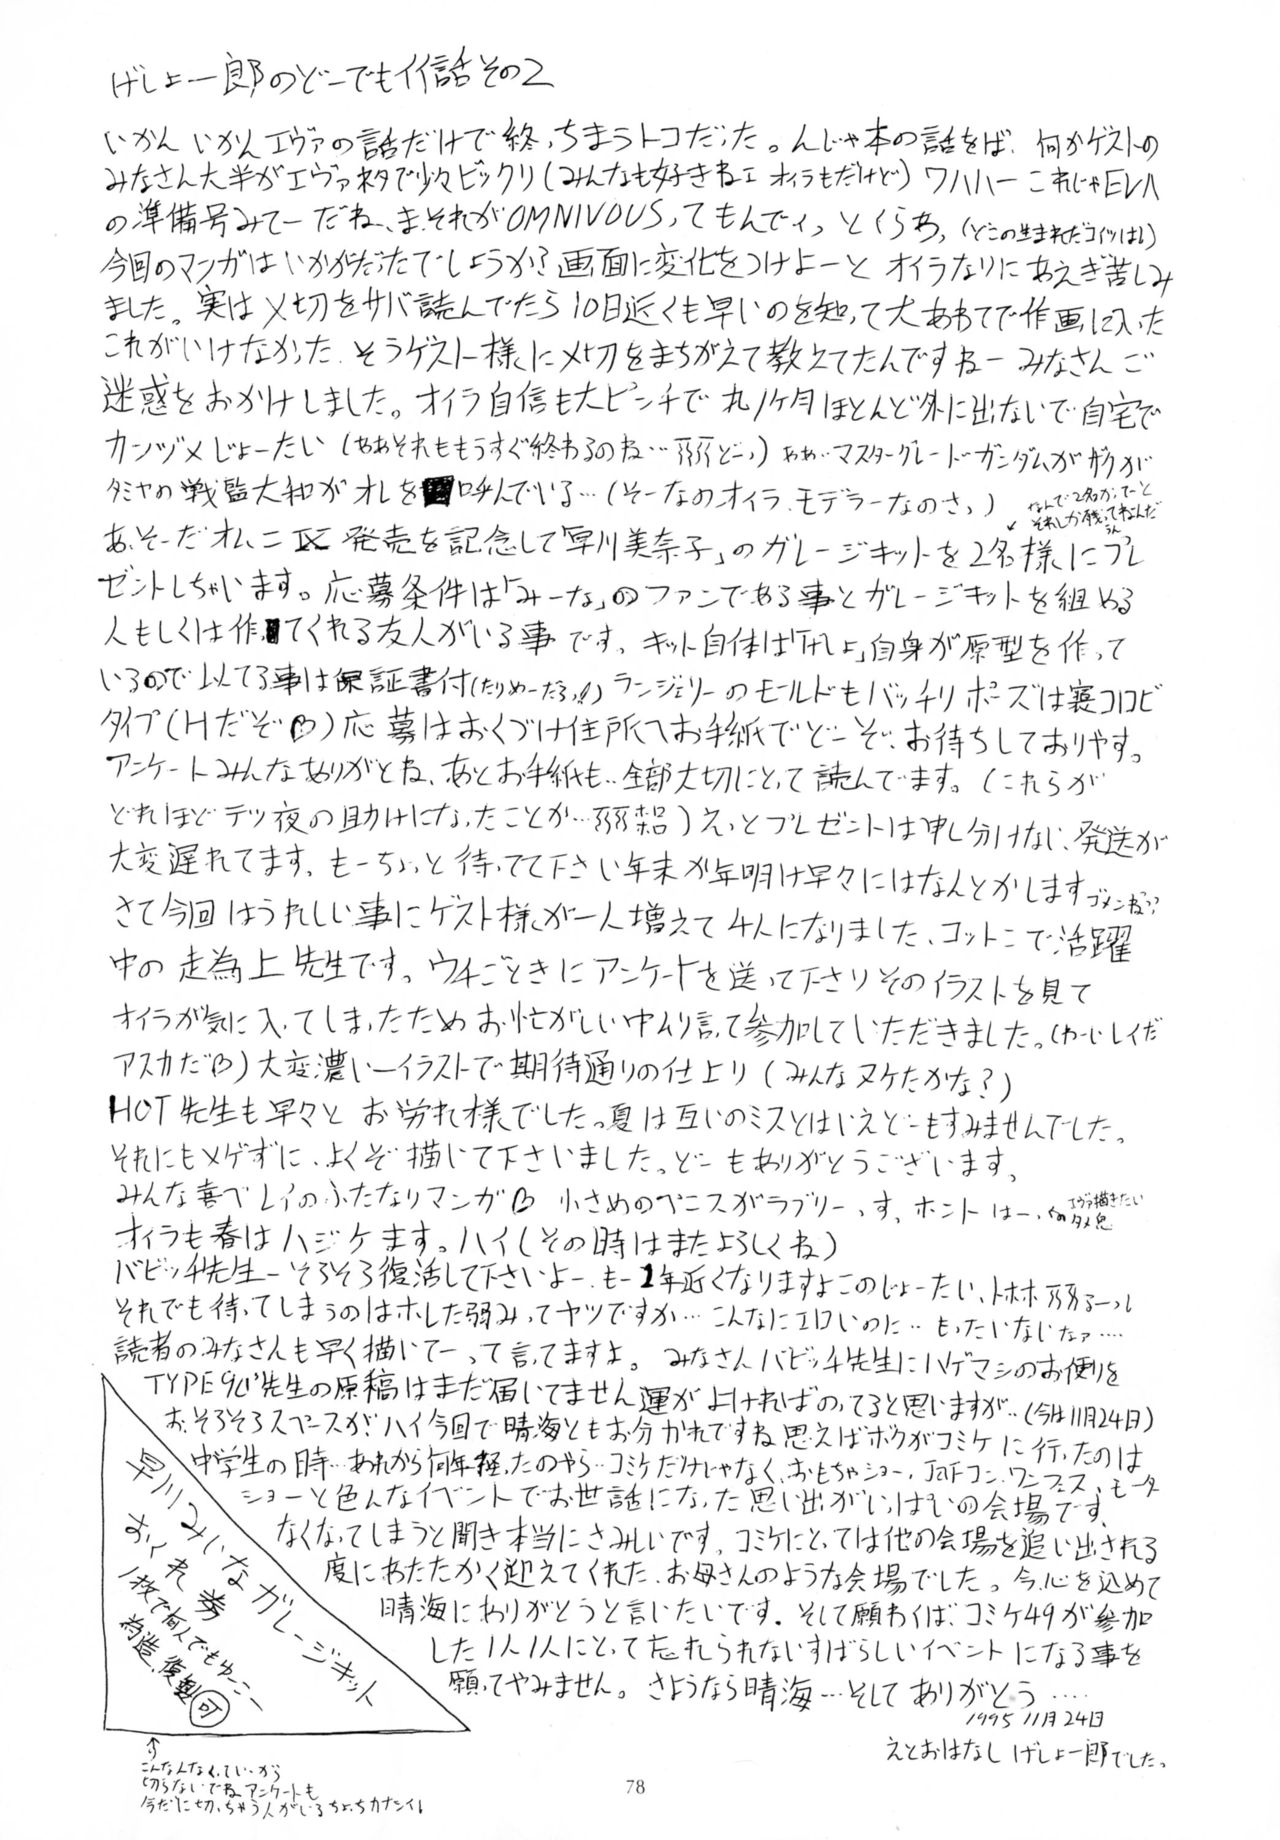 げしょ一郎のどーでもイイ話その2
いかんいかんエヴァの話だけで終っちまうトコだった。んじゃ本の話をば、何かゲストの
みなさん大半がエヴァネタで少々ビックリ(みんなも好きねェ オイラもだけど)ワハハー これじゃEVA
の準備号みてーだね、ま、それがOMNIVOUSってもんでィっとくらぁ、(どこの生まれだコイツは!)
今回のマンガはいかがだったでしょうか?画面に変化をつけよーと オイラなりにあえぎ苦しみ
ました。実は〆切をサバ読んでたら10日近くも早いのを知って大あわてで作画に入った
これがいけなかった、そうゲスト様に〆切をまちがえて教えてたんですねー みなさんご
迷惑をおかけしました。オイラ自信も大ピンチで丸1ヶ月ほとんど外に出ないで自宅で
カンヅメじょーたい(ああそれももうすぐ終わるのね…
どーっ)ああ…マスターグレードガンダムがガクが
タミヤの戦監大和がオレを呼んでいる…(そーなのオイラ、モデラーなのさっ)
なんで2名かってーと
それしか残ってねェんだ
うん
あ、そーだオムニⅨ発売を記念して「早川美奈子」のガレージキットを2名様にプレ
ゼントしちゃいます。応募条件は「みーな」のファンである事とガレージキットを組める
人もしくは作ってくれる友人がいる事です、キット自体は「げしょ」自身が原型を作って
いるので似てる事は保証書付(たりめーだろっ!!)ランジェリーのモールドもバッチリポーズは寝コロビ
タイプ(Hだぞ♡)応募はおくづけ住所へお手紙でどーぞ、お待ちしておりやす。
アンケートみんなありがとね、あとお手紙も、全部大切にとって読んでます。(これらが
どれほどテツ夜の助けになったことか…
)えっとプレゼントは申し分けない、発送が
大変遅れてます、もーちょっと待ってて下さい年末か年明け早々にはなんとかします ゴメンね??
さて今回はうれしい事にゲスト様が一人増えて4人になりました、コットンコで活躍
中の走為上先生です。ウチごときにアンケートを送って下さりそのイラストを見て
オイラが気に入ってしまったためお忙がしい中ムリ言って参加していただきました。(わーいレイだ
アスカだ♡)大変濃いーイラストで期待通りの仕上り(みんなヌケたかな?)
HOT先生も早々とお労れ様でした。夏は互いのミスとはいえどーもすみませんでした。
それにもメゲずに、よくぞ描いて下さいました。どーもありがとうございます。
みんな喜べレイのふたなりマンガ♡ 小さめのペニスがラブリーっす、ホントはー、
エヴァ描きたい
オイラも春はハジケます。ハイ(その時はまたよろしくね)
バビッチ先生ーそろそろ復活して下さいよー、もー1年近くなりますよこのじょーたい、トホホ
それでも待ってしまうのはホレた弱みってヤツですか…こんなにエロいのに‥もったいないなァ…
読者のみなさんも早く描いてーって言ってますよ。みなさんバビッチ先生にハゲマシのお便りを
TYPE90'先生の原稿はまだ届いてません運がよければのってると思いますが…(今は11月24日)
お、そろそろスペースが!ハイ今回で晴海ともお分かれですね思えばボクがコミケに行ったのは
中学生の時…あれから何年経ったのやら…コミケだけじゃなく、おもちゃショー、JAFコン、ワンフェス、モータ
ショーと色んなイベントでお世話になった思い出がいっぱいの会場です、
なくなってしまうと聞き本当にさみしいです、コミケにとっては他の会場を追い出される
度にあたたかく迎えてくれた、お母さんのような会場でした。今、心を込めて
晴海にありがとうと言いたいです。そして願わくば、コミケ49が参加
した1人1人にとって忘れられないすばらしいイベントになる事を
願ってやみません。さようなら晴海…そしてありがとう….
1995 11月24日
えとおはなし げしょ一郎でした。
早川みいなガレージキット
おくれ券
1枚で何人でもゆーこー
為造、復製可
↑
こんなんなくっていーから
切らないでねアンケートも
今だに切っちゃう人がいるちょっちカナシイ!
78